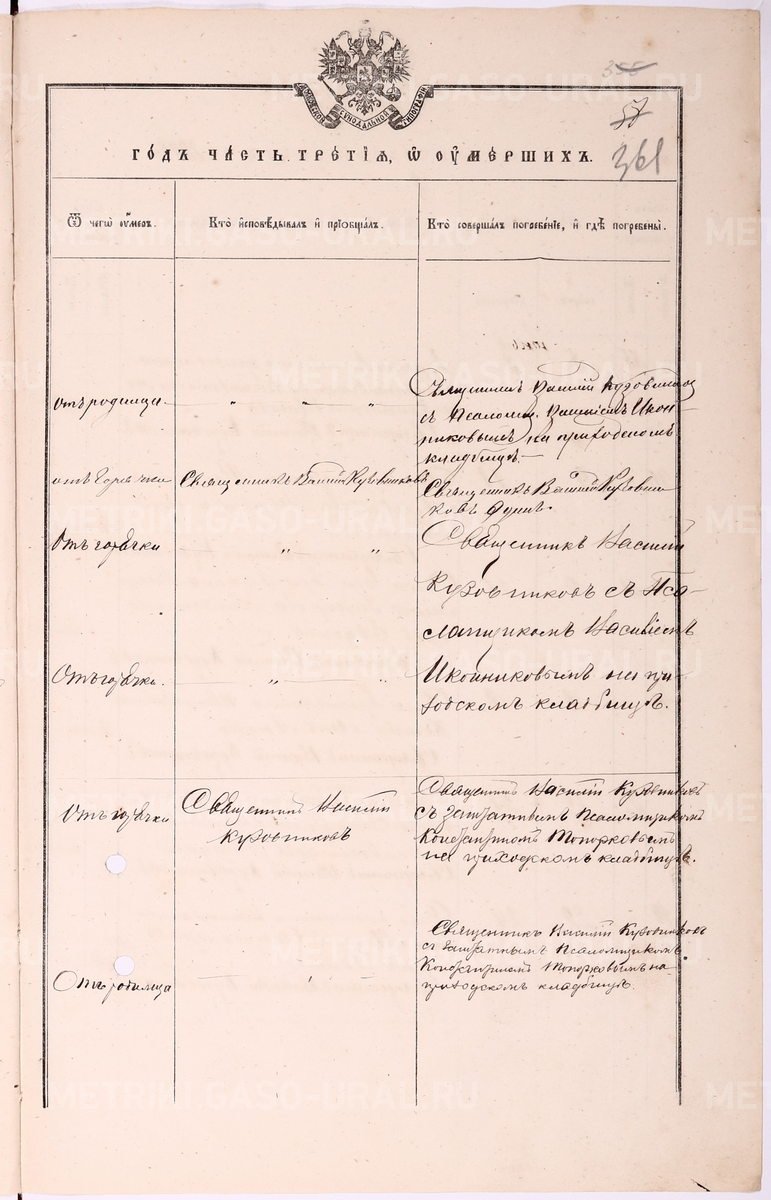 355
57
361
МОСКОВСКОЙ СѴНОДАЛЬНОЙ ТИПОГРАФІИ
ГО́ДЪ ЧА́СТЬ ТРЕ́ТІѦ, Ѡ ОУ҆МЕ́РШИХЪ.
Ѿ чегѡ̀ оу҆́меръ.
Кто̀ и҆сповѣ́дывалъ и҆ прїѡбща́лъ.
Кто̀ соверша́лъ погребе́нїе, и҆ гдѣ̀ погребены̀.
отъ родимца.
" " "
Священникъ Василій Кузовников
съ Псаломщ. Василіемъ Икон-
никовымъ на приходскомъ
кладбищѣ.
отъ горячки
Священникъ Василій Кузовниковъ
Священникъ Василій Кузовни-
ковъ одинъ.
Отъ горячки
" "
Священникъ Василій
Кузовниковъ съ Пса-
ломщикомъ Василіемъ
Иконниковымъ на при-
ходскомъ кладбищѣ.
Отъ горячки.
" "
Отъ горячки
Священникъ Василій
Кузовниковъ
Священникъ Василій Кузовниковъ
съ заштатнымъ Псаломщикомъ
Константиномъ Топорковымъ
на приходскомъ кладбищѣ.
Отъ родимца
Священникъ Василій Кузовниковъ
съ заштатнымъ Псаломщикомъ
Константиномъ Топорковымъ на
приходскомъ кладбищѣ.
METRIKI.GASO-URAL.RU